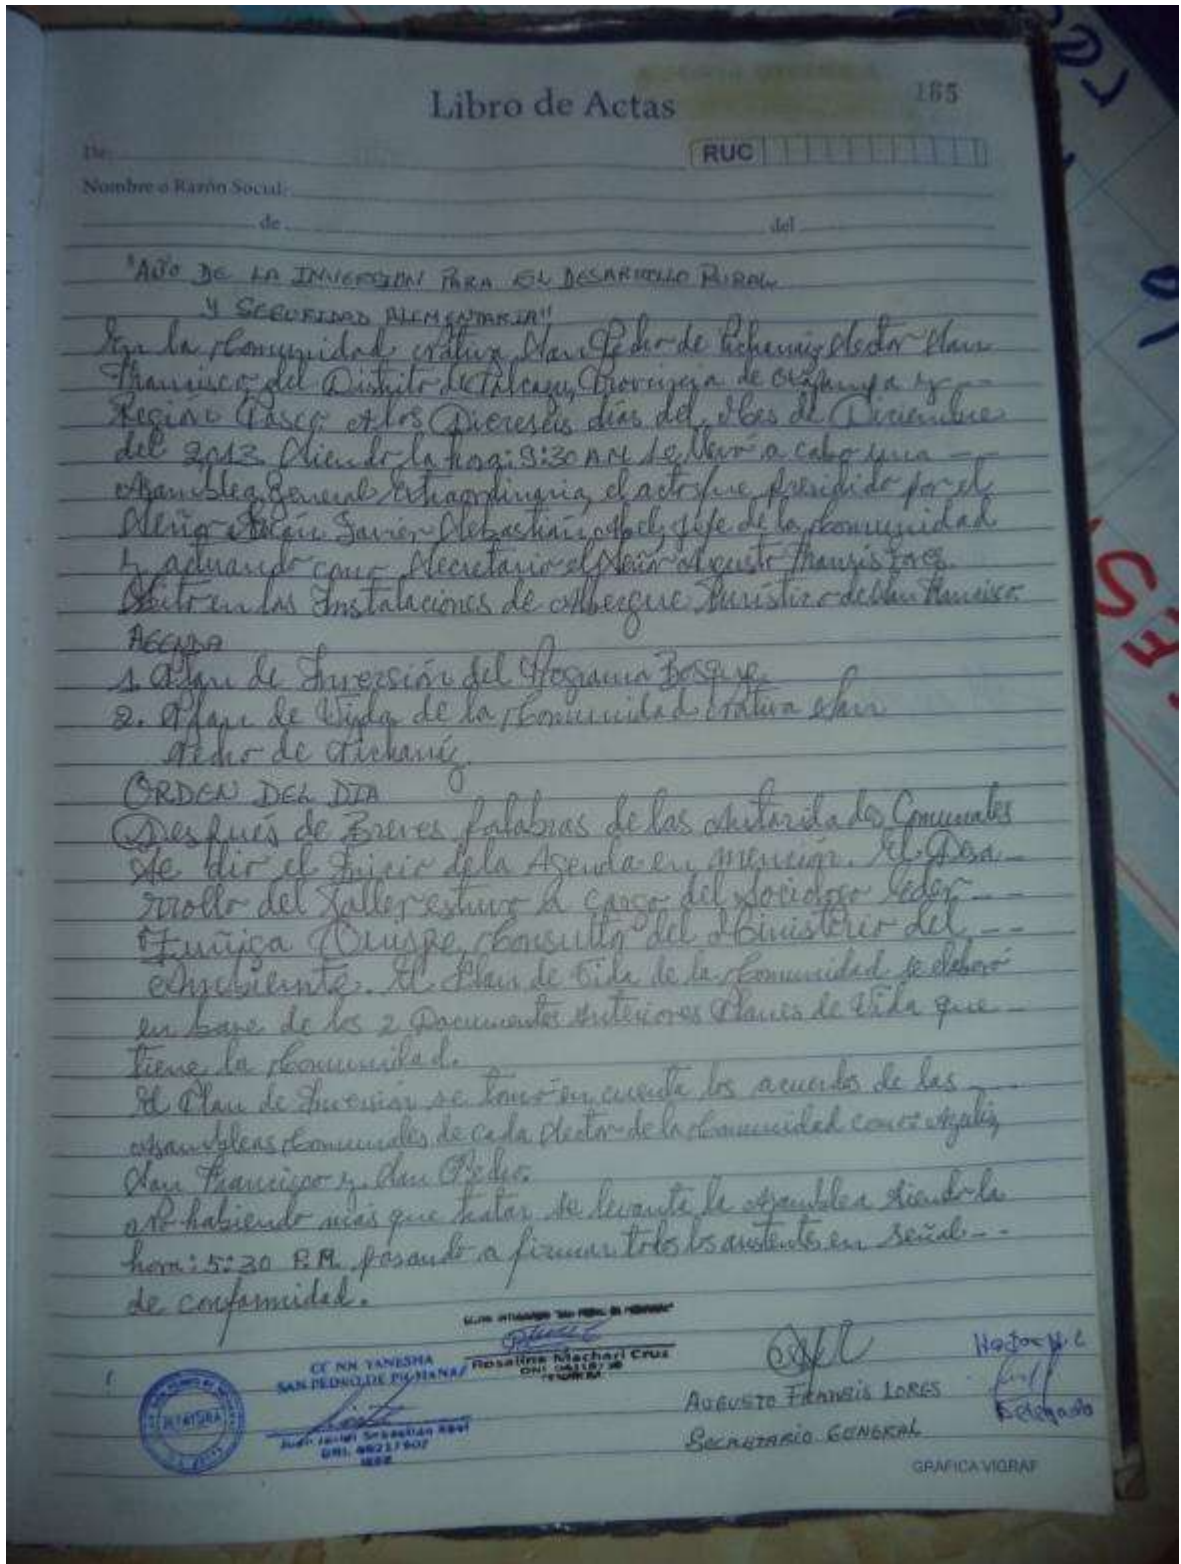 Libro de Actas
165
De:
RUC
Nombre o Razón Social:
de del
"AÑO DE LA INVERSION PARA EL DESARROLLO RURAL
Y SEGURIDAD ALIMENTARIA"
En la Comunidad Nativa San Pedro de Pichanaz Sector San
Francisco del Distrito de Palcazu, Provincia de Oxapampa y --
Región Pasco a los Dieciseis días del Mes de Diciembre
del 2013 Siendo la hora: 9:30 AM se llevó a cabo una --
Asamblea General Extraordinaria, el acto fue presidido por el
Señor Juan Javier Sebastian Abel, jefe de la Comunidad
y actuando como Secretario el Señor Augusto Fransis Lores
en las Instalaciones de Albergue Turístico de San Francisco
AGENDA
1. Plan de Inversión del Programa Bosque
2. Plan de Vida de la Comunidad Nativa San
Pedro de Pichanáz
ORDEN DEL DIA
Después de Breves palabras de las Autoridades Comunales
se dió el Inicio de la Agenda en mención. El Desa-
rrollo del Taller estuvo a cargo del Sociologo Eder --
Zuñiga Quispe, Consultor del Ministerio del --
Ambiente. El Plan de Vida de la Comunidad se elaboró
en base de los 2 Documentos Anteriores Planes de Vida que -
tiene la Comunidad.
El Plan de Inversión se tomó en cuenta los acuerdos de las --
Asambleas Comunales de cada Sector de la Comunidad como:
San Francisco y San Pedro.
No habiendo más que tratar se levanta la Asamblea siendo la
hora: 5:30 P.M. pasando a firmar todos los asistentes en señal --
de conformidad.
CC NN YANESHA
SAN PEDRO DE PICHANAZ
Rosalina Machari Cruz
JEFATURA
Juan Javier Sebastian Abel
JEFE
AUGUSTO FRANSIS LORES
SECRETARIO GENERAL
Delegado
GRAFICA VIGRAF